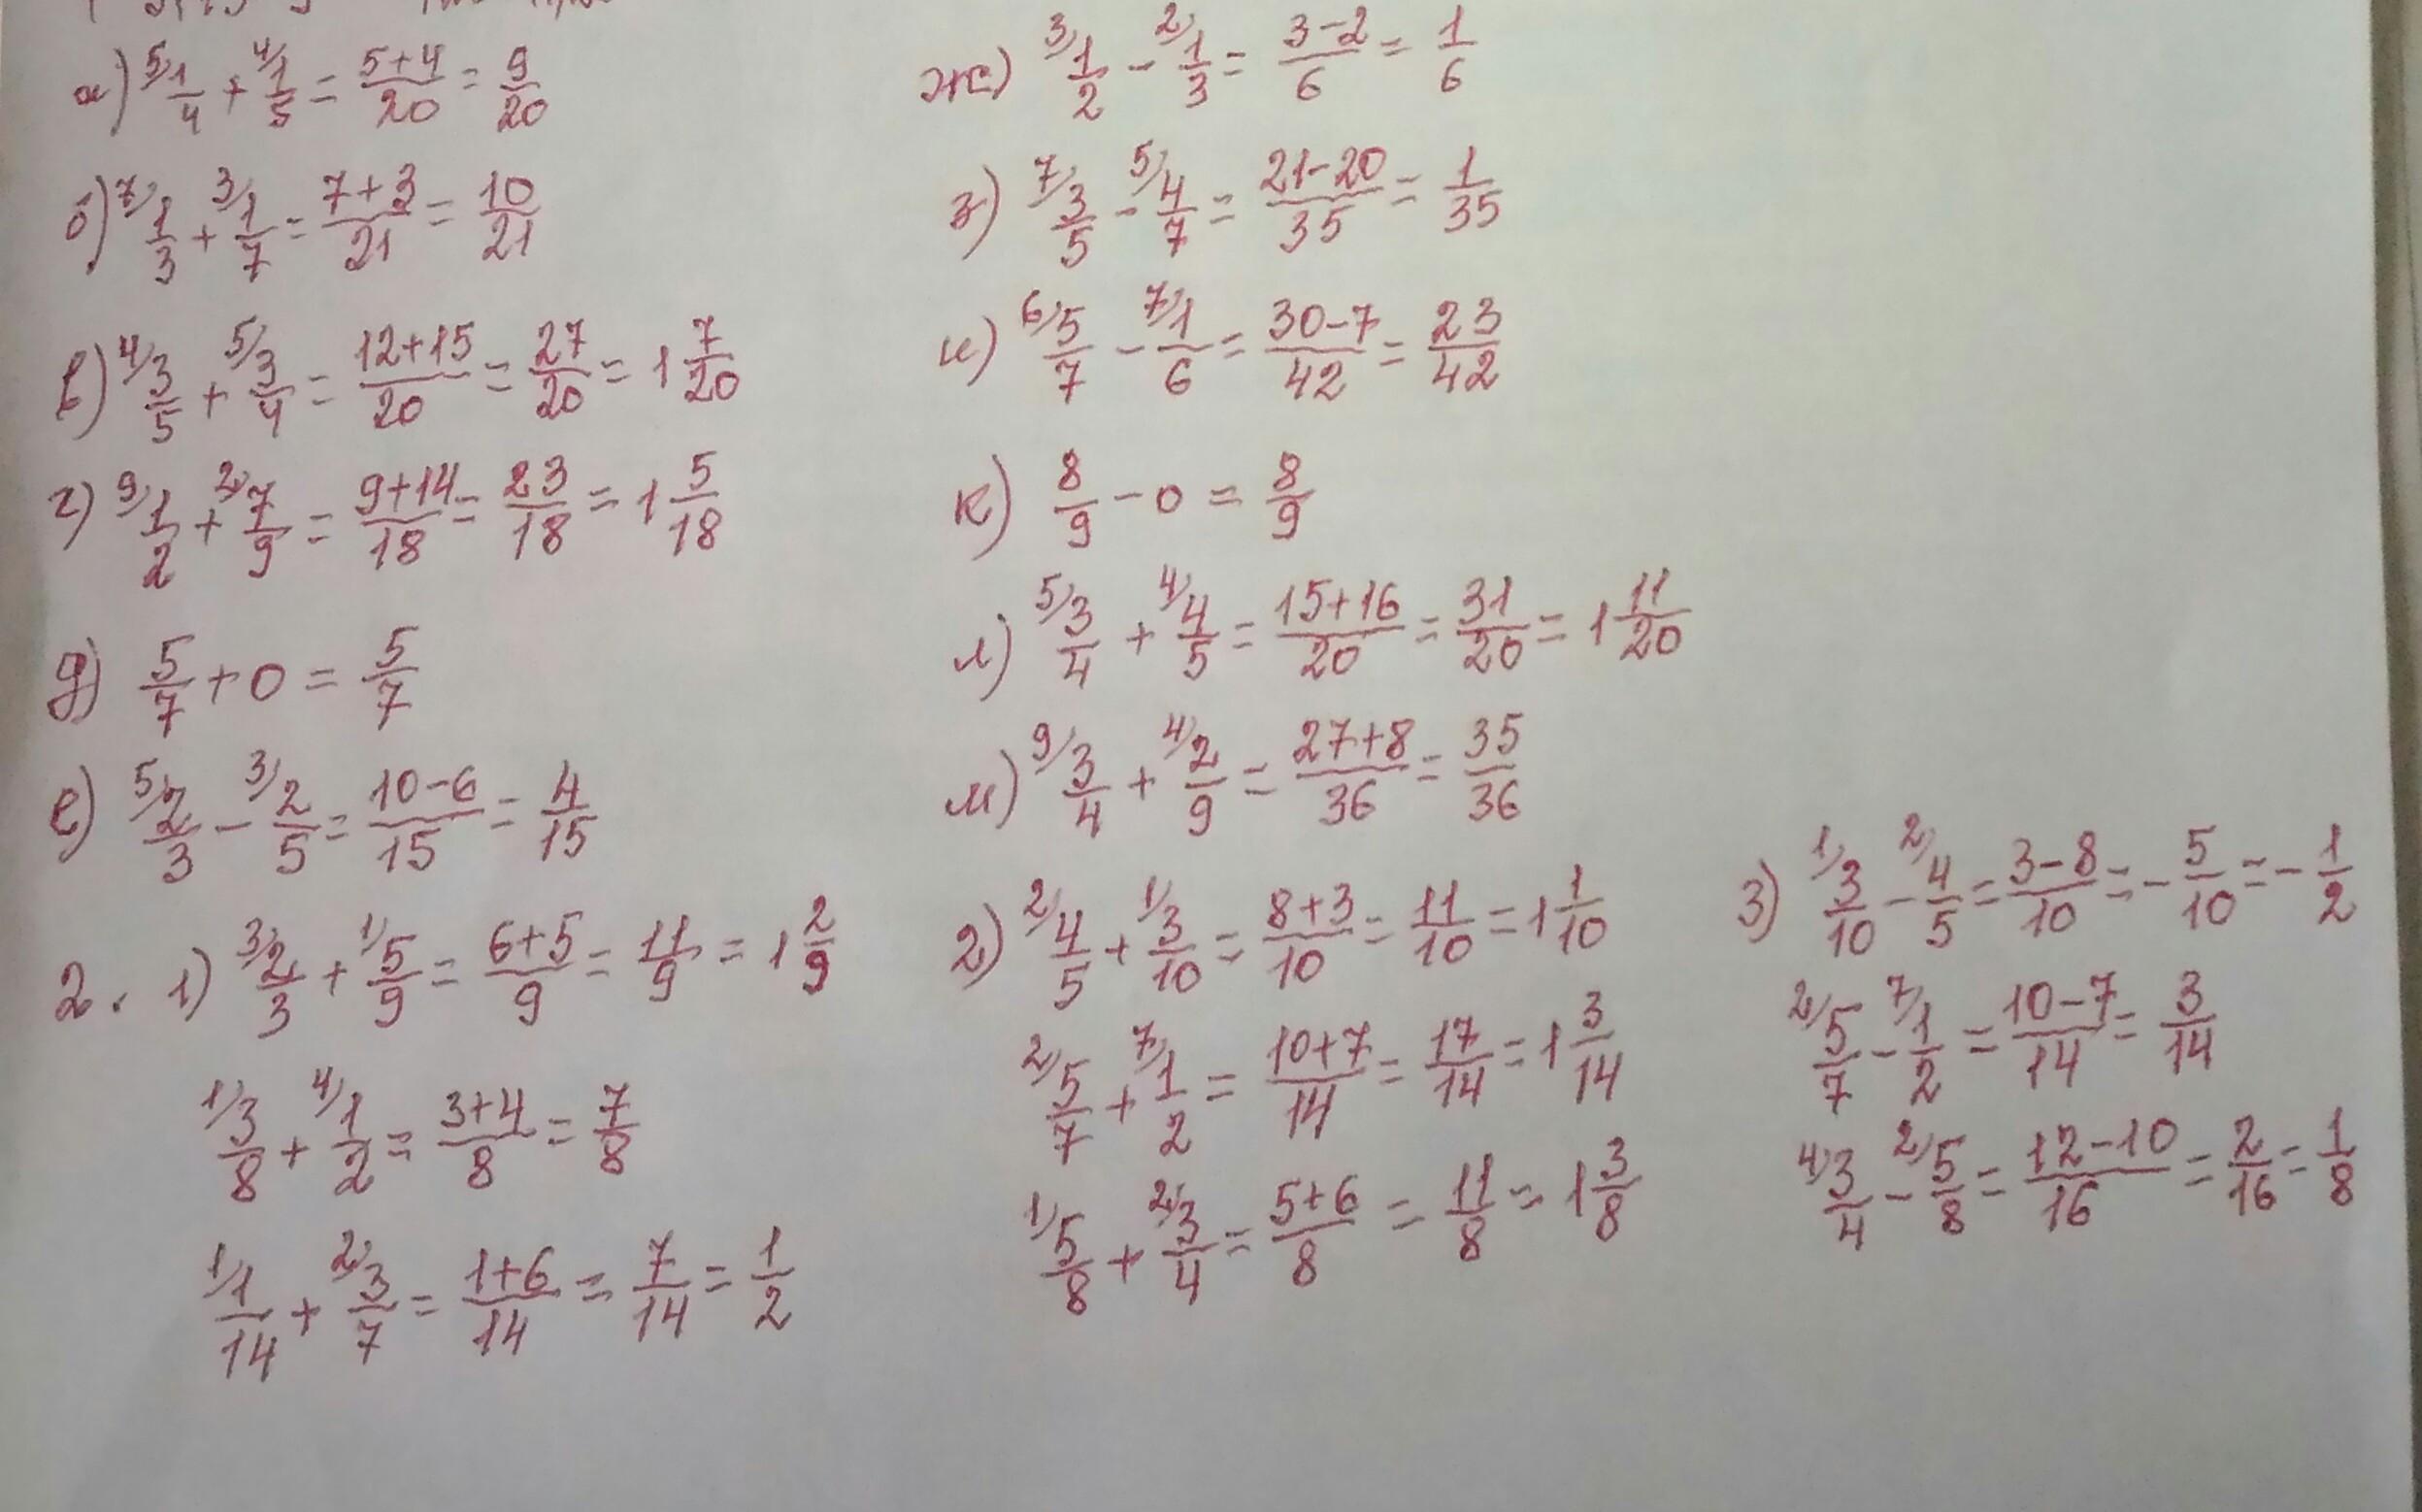 а) ⁵⁄1/4 + ⁴⁄1/5 = (5+4)/20 = 9/20
б) ⁷⁄1/3 + ³⁄1/7 = (7+3)/21 = 10/21
в) ⁴⁄3/5 + ⁵⁄3/4 = (12+15)/20 = 27/20 = 1 7/20
г) ⁹⁄1/2 + ²⁄7/9 = (9+14)/18 = 23/18 = 1 5/18
д) 5/7 + 0 = 5/7
е) ⁵⁄2/3 - ³⁄2/5 = (10-6)/15 = 4/15
ж) ³⁄1/2 - ²⁄1/3 = (3-2)/6 = 1/6
з) ⁷⁄3/5 - ⁵⁄4/7 = (21-20)/35 = 1/35
и) ⁶⁄5/7 - ⁷⁄1/6 = (30-7)/42 = 23/42
к) 8/9 - 0 = 8/9
л) ⁵⁄3/4 + ⁴⁄4/5 = (15+16)/20 = 31/20 = 1 11/20
м) ⁹⁄3/4 + ⁴⁄2/9 = (27+8)/36 = 35/36
2. 1) ³⁄2/3 + ¹⁄5/9 = (6+5)/9 = 11/9 = 1 2/9
¹⁄3/8 + ⁴⁄1/2 = (3+4)/8 = 7/8
¹⁄1/14 + ²⁄3/7 = (1+6)/14 = 7/14 = 1/2
2) ²⁄4/5 + ¹⁄3/10 = (8+3)/10 = 11/10 = 1 1/10
²⁄5/7 + ⁷⁄1/2 = (10+7)/14 = 17/14 = 1 3/14
¹⁄5/8 + ²⁄3/4 = (5+6)/8 = 11/8 = 1 3/8
3) ¹⁄3/10 - ²⁄4/5 = (3-8)/10 = - 5/10 = - 1/2
²⁄5/7 - ⁷⁄1/2 = (10-7)/14 = 3/14
⁴⁄3/4 - ²⁄5/8 = (12-10)/16 = 2/16 = 1/8